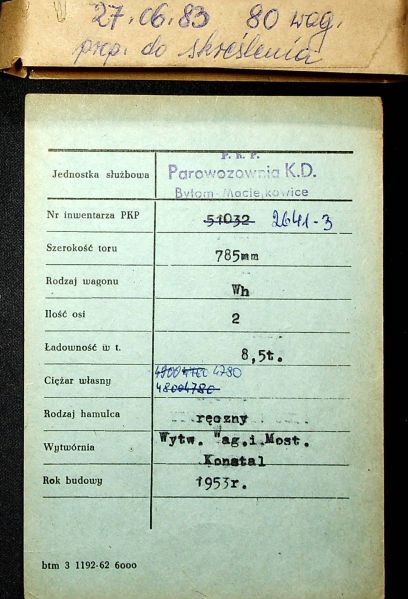 27.06.83 80 wag.
prop. do skreślenia
P. K. P.
Jednostka służbowa Parowozownia K.D.
Bytom-Maciejkowice
Nr inwentarza PKP 51032 2641-3
Szerokość toru 785mm
Rodzaj wagonu Wh
Ilość osi 2
Ładowność w t. 8,5t.
4900 4780
Ciężar własny 4800 4780
Rodzaj hamulca ręczny
Wytwórnia Wytw. Wag.i.Most.
Konstal
Rok budowy 1953r.
btm 3 1192-62 6000